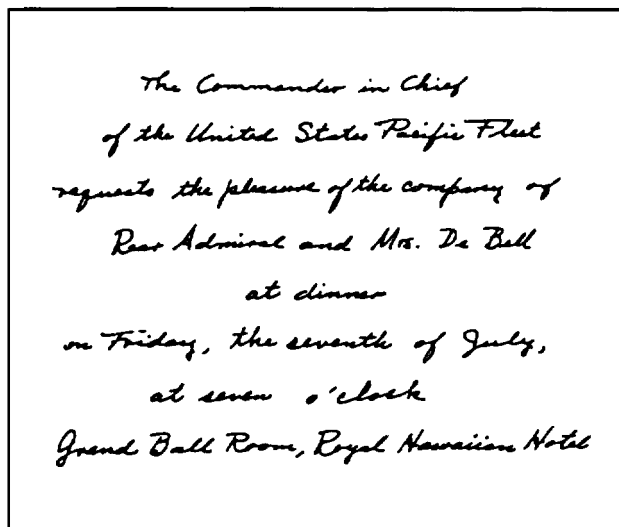 The Commander in Chief
of the United States Pacific Fleet
requests the pleasure of the company of
Rear Admiral and Mrs. De Bell
at dinner
on Friday, the seventh of July,
at seven o'clock
Grand Ball Room, Royal Hawaiian Hotel